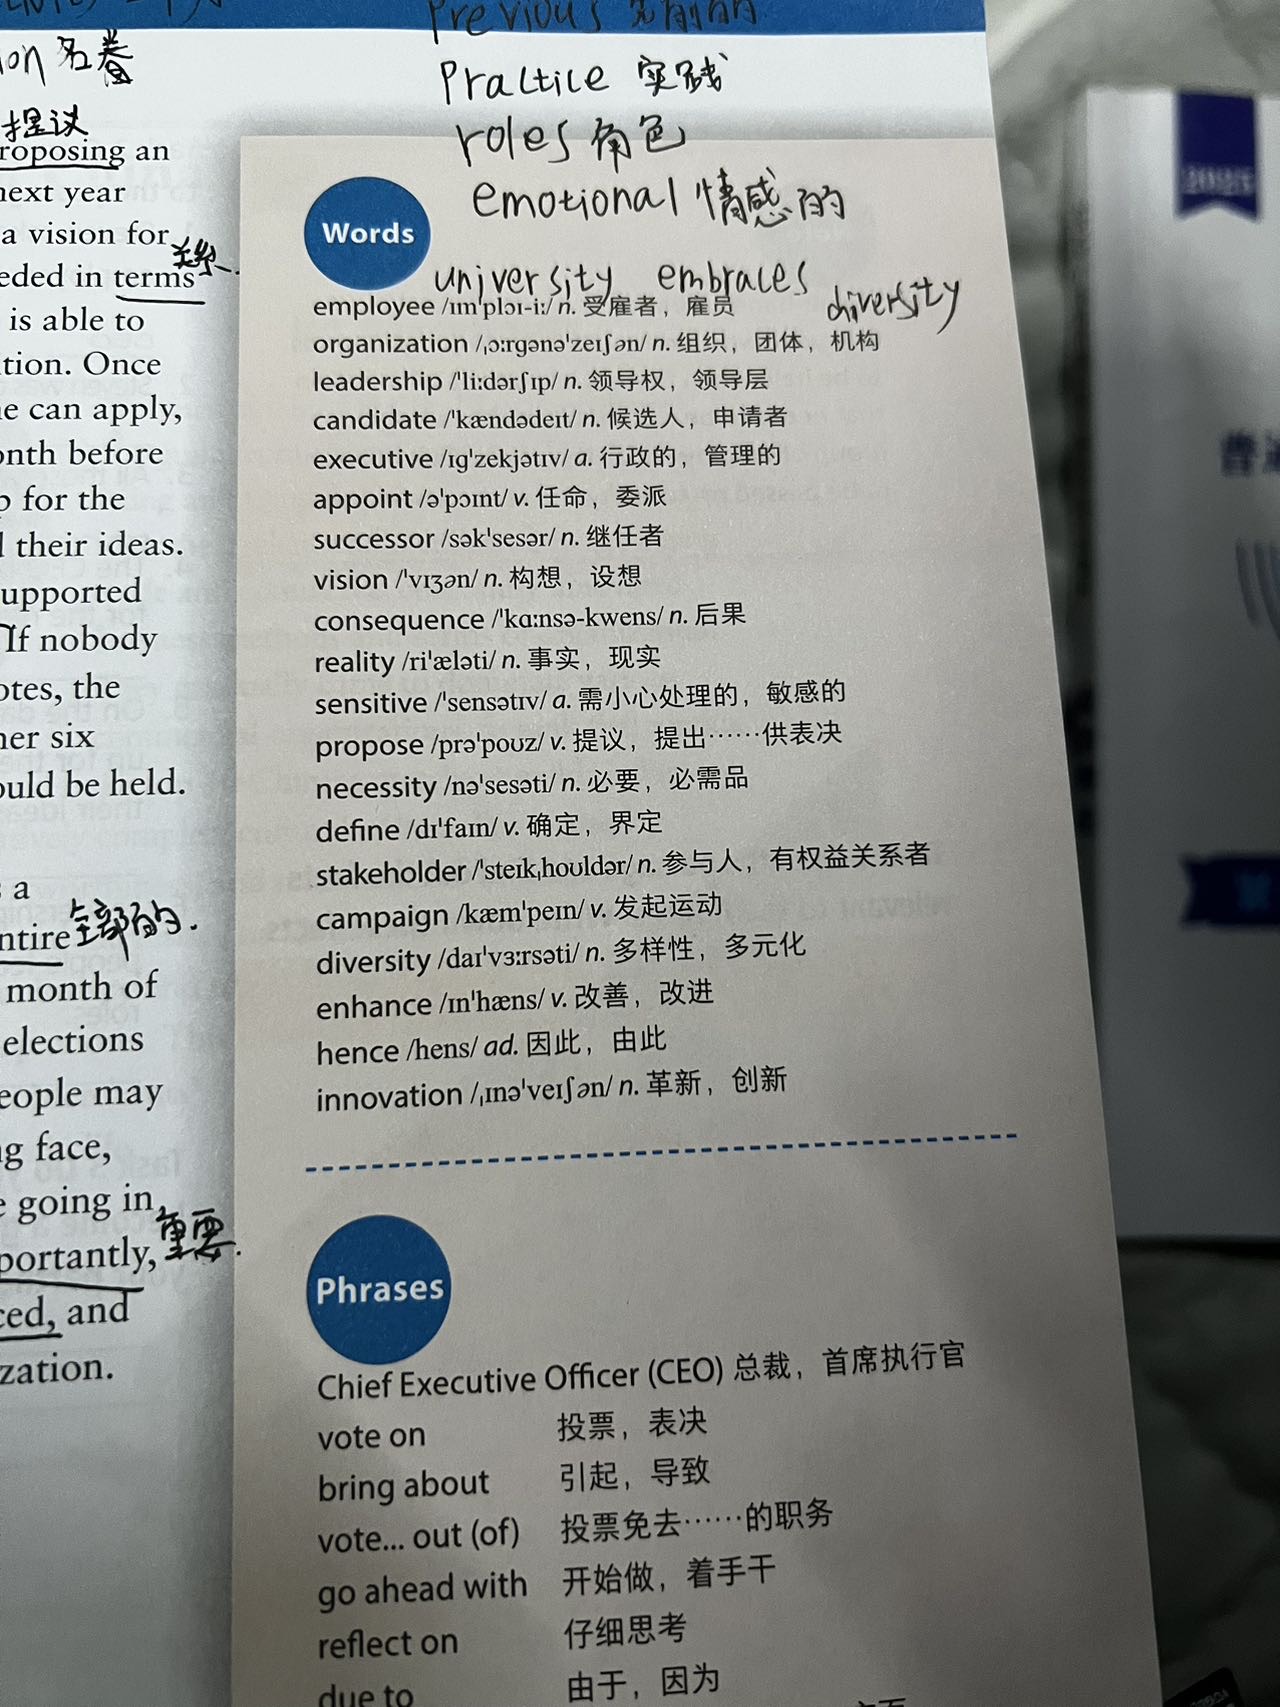 Previous 先前的
Practice 实践
roles 角色
emotional 情感的
university embraces diversity
提议
roposing an
next year
a vision for
关系
eded in terms
is able to
tion. Once
e can apply,
onth before
p for the
their ideas.
upported
If nobody
otes, the
her six
ould be held.
a
ntire 全部的.
month of
elections
eople may
ng face,
e going in,
portantly, 重要.
ced, and
zation.
Words
employee /ɪmˈplɔɪ-iː/ n. 受雇者，雇员
organization /ˌɔːrɡənəˈzeɪʃən/ n. 组织，团体，机构
leadership /ˈliːdərʃɪp/ n. 领导权，领导层
candidate /ˈkændədeɪt/ n. 候选人，申请者
executive /ɪɡˈzekjətɪv/ a. 行政的，管理的
appoint /əˈpɔɪnt/ v. 任命，委派
successor /səkˈsesər/ n. 继任者
vision /ˈvɪʒən/ n. 构想，设想
consequence /ˈkɑːnsə-kwens/ n. 后果
reality /riˈæləti/ n. 事实，现实
sensitive /ˈsensətɪv/ a. 需小心处理的，敏感的
propose /prəˈpoʊz/ v. 提议，提出……供表决
necessity /nəˈsesəti/ n. 必要，必需品
define /dɪˈfaɪn/ v. 确定，界定
stakeholder /ˈsteɪkˌhoʊldər/ n. 参与人，有权益关系者
campaign /kæmˈpeɪn/ v. 发起运动
diversity /daɪˈvɜːrsəti/ n. 多样性，多元化
enhance /ɪnˈhæns/ v. 改善，改进
hence /hens/ ad. 因此，由此
innovation /ˌɪnəˈveɪʃən/ n. 革新，创新
Phrases
Chief Executive Officer (CEO) 总裁，首席执行官
vote on 投票，表决
bring about 引起，导致
vote... out (of) 投票免去……的职务
go ahead with 开始做，着手干
reflect on 仔细思考
due to 由于，因为
2025